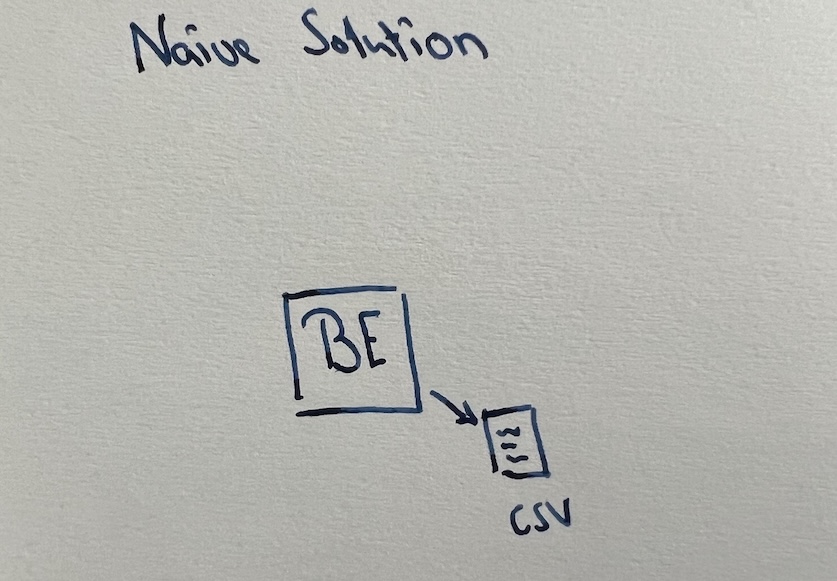 Naive Solution
BE
CSV